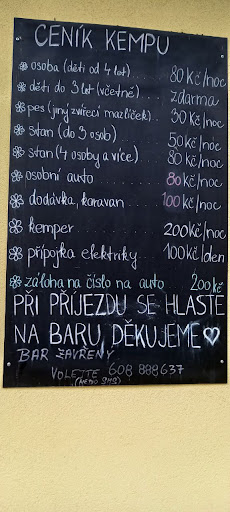 CENÍK KEMPU
osoba (děti od 4 let) .... 80 Kč/noc
děti do 3 let (včetně) .... zdarma
pes (jiný zvířecí mazlíček). 30 Kč/noc
stan (do 3 osob) ...... 50 Kč/noc
stan (4 osoby a více) .. 80 Kč/noc
osobní auto ...... 80 Kč/noc
dodávka, karavan ..... 100 Kč/noc
kemper ...... 200 Kč/noc
přípojka elektřiky .... 100 Kč/den
záloha na číslo na auto .. 200 kč
PŘI PŘÍJEZDU SE HLASTE
NA BARU, DĚKUJEME ♡
BAR ZAVŘENÝ
VOLEJTE 608 888 637
(NEBO SMS)